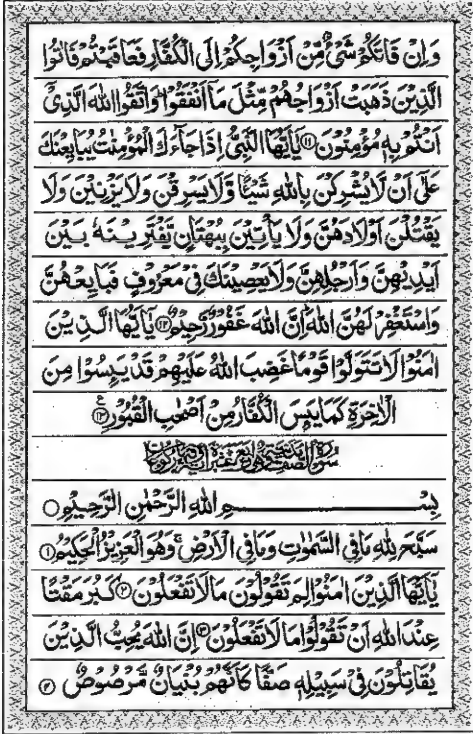 وَاِنْ فَاتَكُمْ شَىْءٌ مِّنْ اَزْوَاجِكُمْ اِلَى الْكُفَّارِ فَعَاقَبْتُمْ فَاٰتُوا
الَّذِيْنَ ذَهَبَتْ اَزْوَاجُهُمْ مِّثْلَ مَاۤ اَنْفَقُوْا ؕ وَاتَّقُوا اللّٰهَ الَّذِىْۤ
اَنْتُمْ بِهٖ مُؤْمِنُوْنَ ﴿۱۱﴾ يٰۤاَيُّهَا النَّبِىُّ اِذَا جَآءَكَ الْمُؤْمِنٰتُ يُبَايِعْنَكَ
عَلٰۤى اَنْ لَّا يُشْرِكْنَ بِاللّٰهِ شَيْئًا وَّلَا يَسْرِقْنَ وَلَا يَزْنِيْنَ وَلَا
يَقْتُلْنَ اَوْلَادَهُنَّ وَلَا يَاْتِيْنَ بِبُهْتَانٍ يَّفْتَرِيْنَهٗ بَيْنَ
اَيْدِيْهِنَّ وَاَرْجُلِهِنَّ وَلَا يَعْصِيْنَكَ فِىْ مَعْرُوْفٍ فَبَايِعْهُنَّ
وَاسْتَغْفِرْ لَهُنَّ اللّٰهَ ؕ اِنَّ اللّٰهَ غَفُوْرٌ رَّحِيْمٌ ﴿۱۲﴾ يٰۤاَيُّهَا الَّذِيْنَ
اٰمَنُوْا لَا تَتَوَلَّوْا قَوْمًا غَضِبَ اللّٰهُ عَلَيْهِمْ قَدْ يَئِسُوْا مِنَ
الْاٰخِرَةِ كَمَا يَئِسَ الْكُفَّارُ مِنْ اَصْحٰبِ الْقُبُوْرِ ﴿۱۳﴾
بِسْمِ اللّٰهِ الرَّحْمٰنِ الرَّحِيْمِ
سَبَّحَ لِلّٰهِ مَا فِى السَّمٰوٰتِ وَمَا فِى الْاَرْضِ ۚ وَهُوَ الْعَزِيْزُ الْحَكِيْمُ ﴿۱﴾
يٰۤاَيُّهَا الَّذِيْنَ اٰمَنُوْا لِمَ تَقُوْلُوْنَ مَا لَا تَفْعَلُوْنَ ﴿۲﴾ كَبُرَ مَقْتًا
عِنْدَ اللّٰهِ اَنْ تَقُوْلُوْا مَا لَا تَفْعَلُوْنَ ﴿۳﴾ اِنَّ اللّٰهَ يُحِبُّ الَّذِيْنَ
يُقَاتِلُوْنَ فِىْ سَبِيْلِهٖ صَفًّا كَاَنَّهُمْ بُنْيَانٌ مَّرْصُوْصٌ ﴿۴﴾